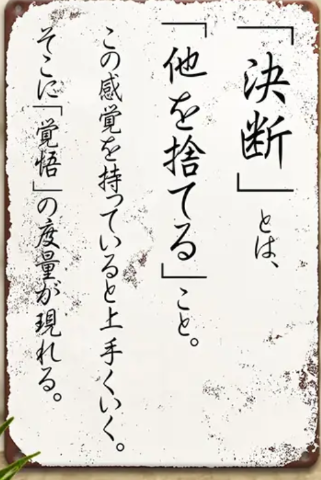 「決断」とは、
「他を捨てる」こと。
この感覚を持っていると上手くいく。
そこに「覚悟」の度量が現れる。